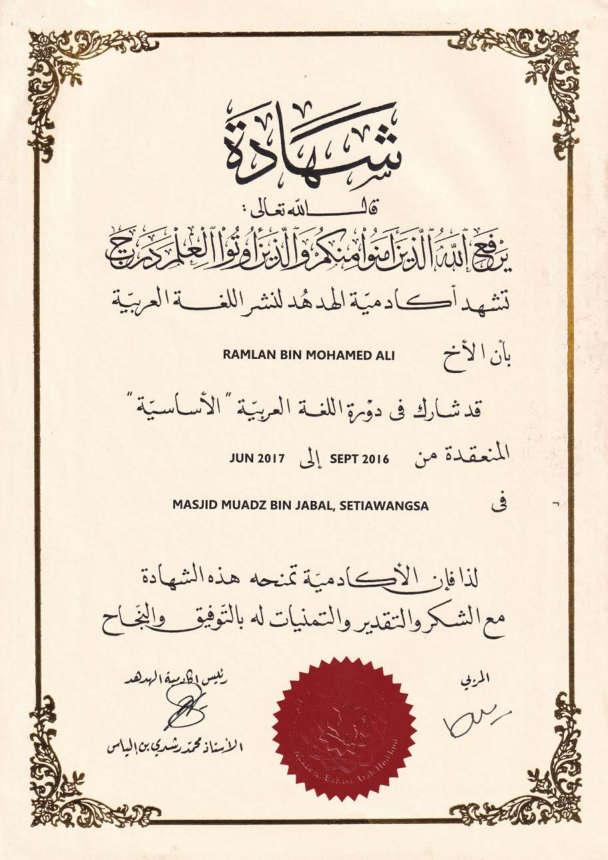 شهادة
قال الله تعالى :
يَرْفَعِ اللَّهُ الَّذِينَ آمَنُوا مِنكُمْ وَالَّذِينَ أُوتُوا الْعِلْمَ دَرَجٰ
تشهد أكاديميّة الهدهُد لنشر اللغة العربيّة
بأن الأخ RAMLAN BIN MOHAMED ALI
قد شارك فى دوْرة اللغة العربيّة "الأساسيّة"
المنعقدة من SEPT 2016 إلى JUN 2017
فى MASJID MUADZ BIN JABAL, SETIAWANGSA
لذا فإن الأكادميّة تمنحه هذه الشهادة
مع الشكر والتقدير والتمنيات له بالتّوفيق والنجَاح
المربي
رئيس اكاديمية الهدهد
الأستاذ محمّد رشدي بن الياس